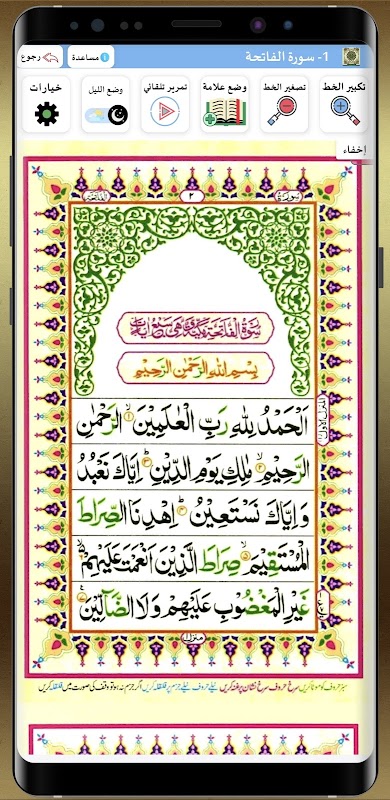 1- سورة الفاتحة
مساعدة
رجوع
تكبير الخط
تصغير الخط
وضع علامة
تمرير تلقائي
وضع الليل
خيارات
إخفاء
٢
سُوْرَةُ الْفَاتِحَةِ مَكِّيَّةٌ وَّهِىَ سَبْعُ اٰيَاتٍ
بِسْمِ اللّٰهِ الرَّحْمٰنِ الرَّحِيْمِ
اَلْحَمْدُ لِلّٰهِ رَبِّ الْعٰلَمِيْنَ ۙ‏ ۱ الرَّحْمٰنِ
الرَّحِيْمِ ۙ‏ ۲ مٰلِكِ يَوْمِ الدِّيْنِ ؕ‏ ۳ اِيَّاكَ نَعْبُدُ
وَاِيَّاكَ نَسْتَعِيْنُ ؕ‏ ۴ اِهْدِنَا الصِّرَاطَ
الْمُسْتَقِيْمَ ۙ‏ ۵ صِرَاطَ الَّذِيْنَ اَنْعَمْتَ عَلَيْهِمْ ۙ۬ ۶
غَيْرِ الْمَغْضُوْبِ عَلَيْهِمْ وَلَا الضَّآلِّيْنَ ۷
منزل ۱